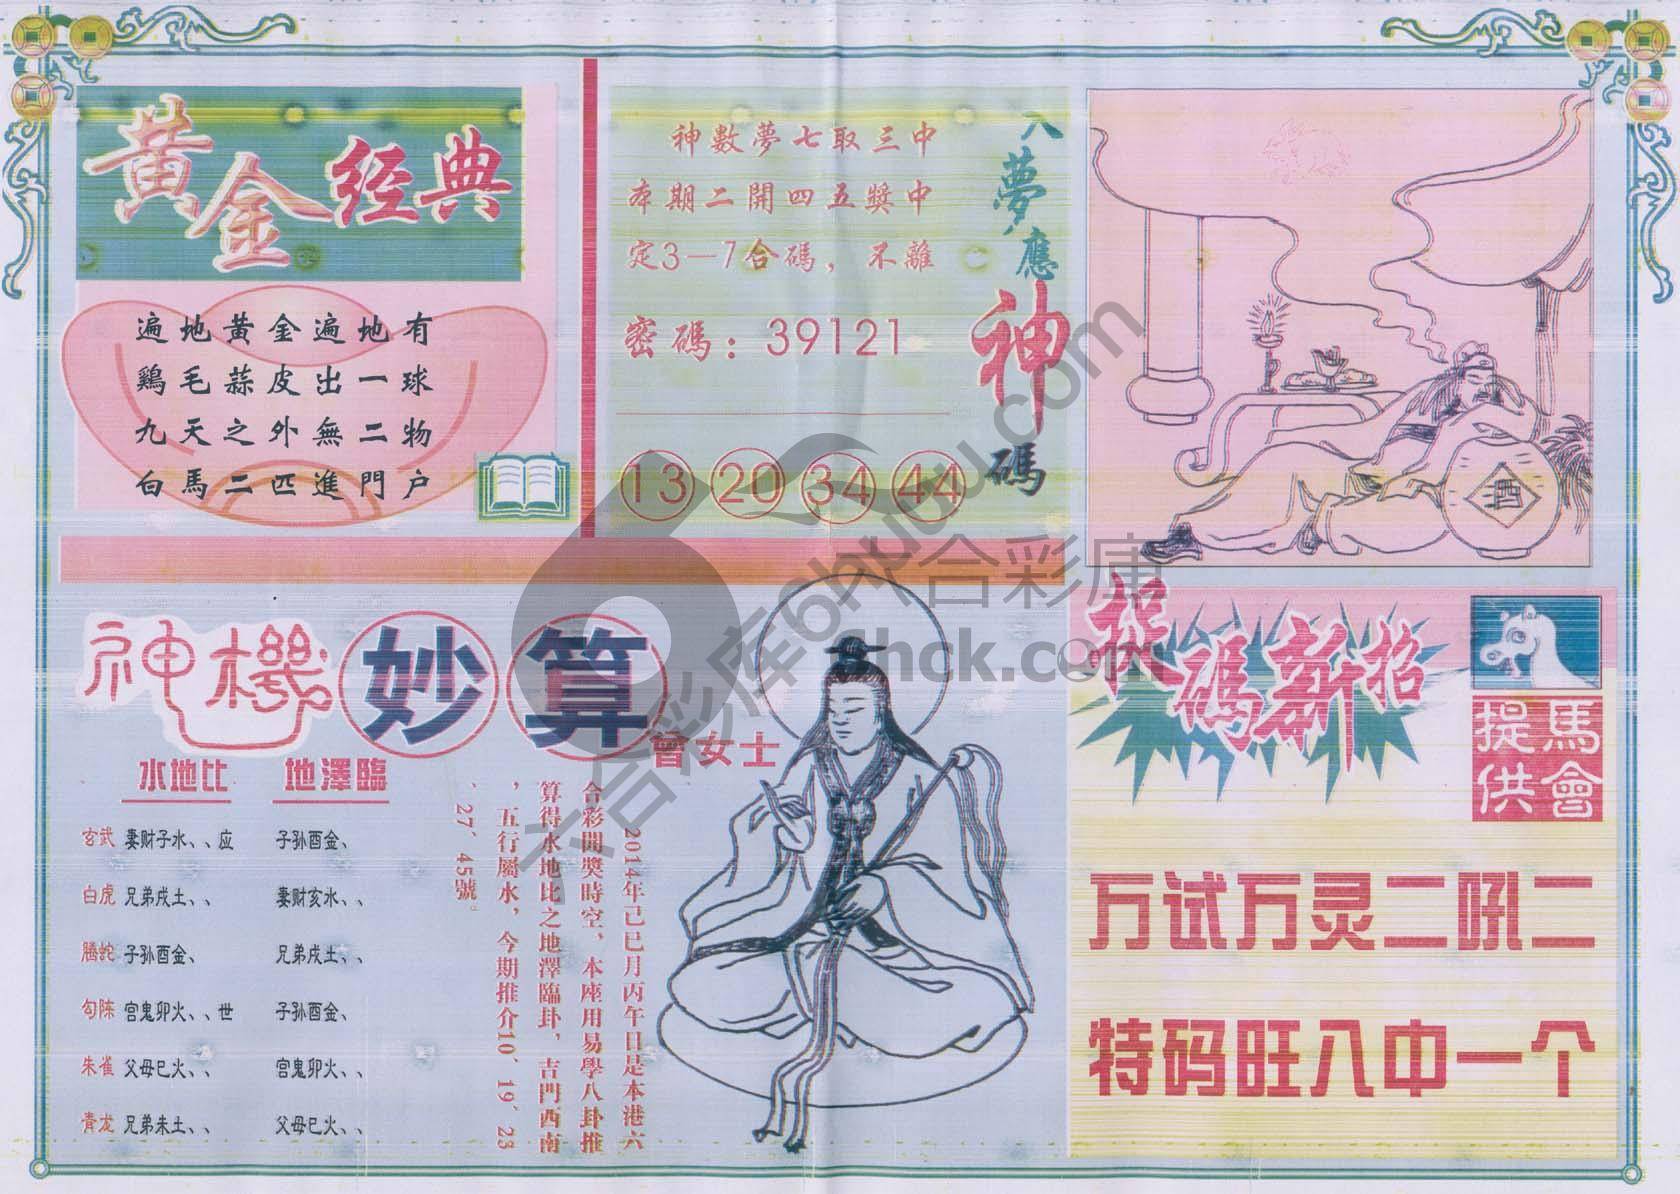 黄金经典
遍地黄金遍地有
鷄毛蒜皮出一球
九天之外無二物
白馬二匹進門户
入夢應神碼
神數夢七取三中
本期二開四五獎中
定3—7合碼，不離
密碼：39121
13 20 34 44
酒
神機妙算
曾女士
水地比 地澤臨
玄武 妻财子水、、应 子孙酉金、
白虎 兄弟戌土、、 妻财亥水、、
腾蛇 子孙酉金、 兄弟戌土、、
勾陈 宫鬼卯火、、世 子孙酉金、
朱雀 父母巳火、、 宫鬼卯火、、
青龙 兄弟未土、、 父母巳火、、
2014年己巳月丙午日是本港六
合彩開獎時空，本座用易學八卦推
算得水地比之地澤臨卦，吉門西南
，五行屬水，今期推介10、19、23
、27、45號。
捉碼新招
馬會
提供
万试万灵二吼二
特码旺入中一个
六合彩库6huku.com
六合彩庫
6hck.com